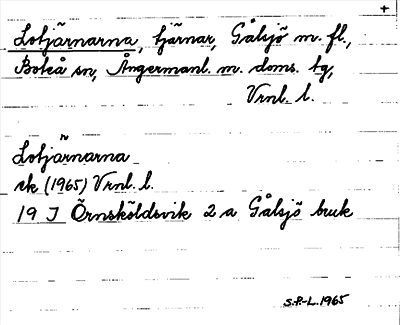 +
Lotjärnarna, tjärnar, Gålsjö m. fl.,
Boteå sn, Ångermanl. m. doms. tg,
Vrnl. l.
Lotjärnarna
ek (1965) Vrnl. l.
19 J Örnsköldsvik 2 a Gålsjö bruk
S.P.-L. 1965